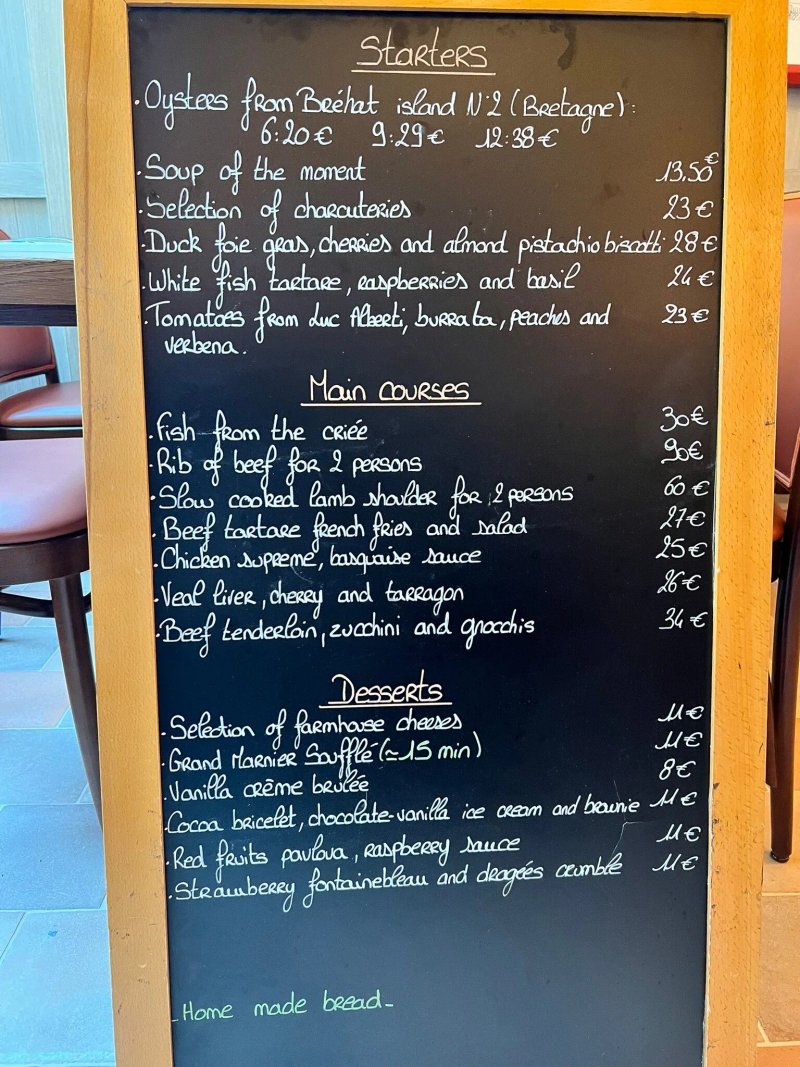 Starters
· Oysters from Bréhat island N°2 (Bretagne):
6:20€ 9:29€ 12:38€
· Soup of the moment 13,50€
· Selection of charcuteries 23€
· Duck foie gras, cherries and almond pistachio biscotti 28€
· White fish tartare, raspberries and basil 24€
· Tomatoes from Luc Alberti, burrata, peaches and 23€
verbena.
Main courses
· Fish from the criée 30€
· Rib of beef for 2 persons 90€
· Slow cooked lamb shoulder for 2 persons 60€
· Beef tartare french fries and salad 27€
· Chicken supreme, basquaise sauce 25€
· Veal liver, cherry and tarragon 26€
· Beef tenderloin, zucchini and gnocchis 34€
Desserts
· Selection of farmhouse cheeses 11€
· Grand Marnier Soufflé (≃15 min) 11€
· Vanilla crème brûlée 8€
· Cocoa bricelet, chocolate-vanilla ice cream and brownie 11€
· Red fruits pavlova, raspberry sauce 11€
· Strawberry fontainebleau and dragées crumble 11€
- Home made bread -